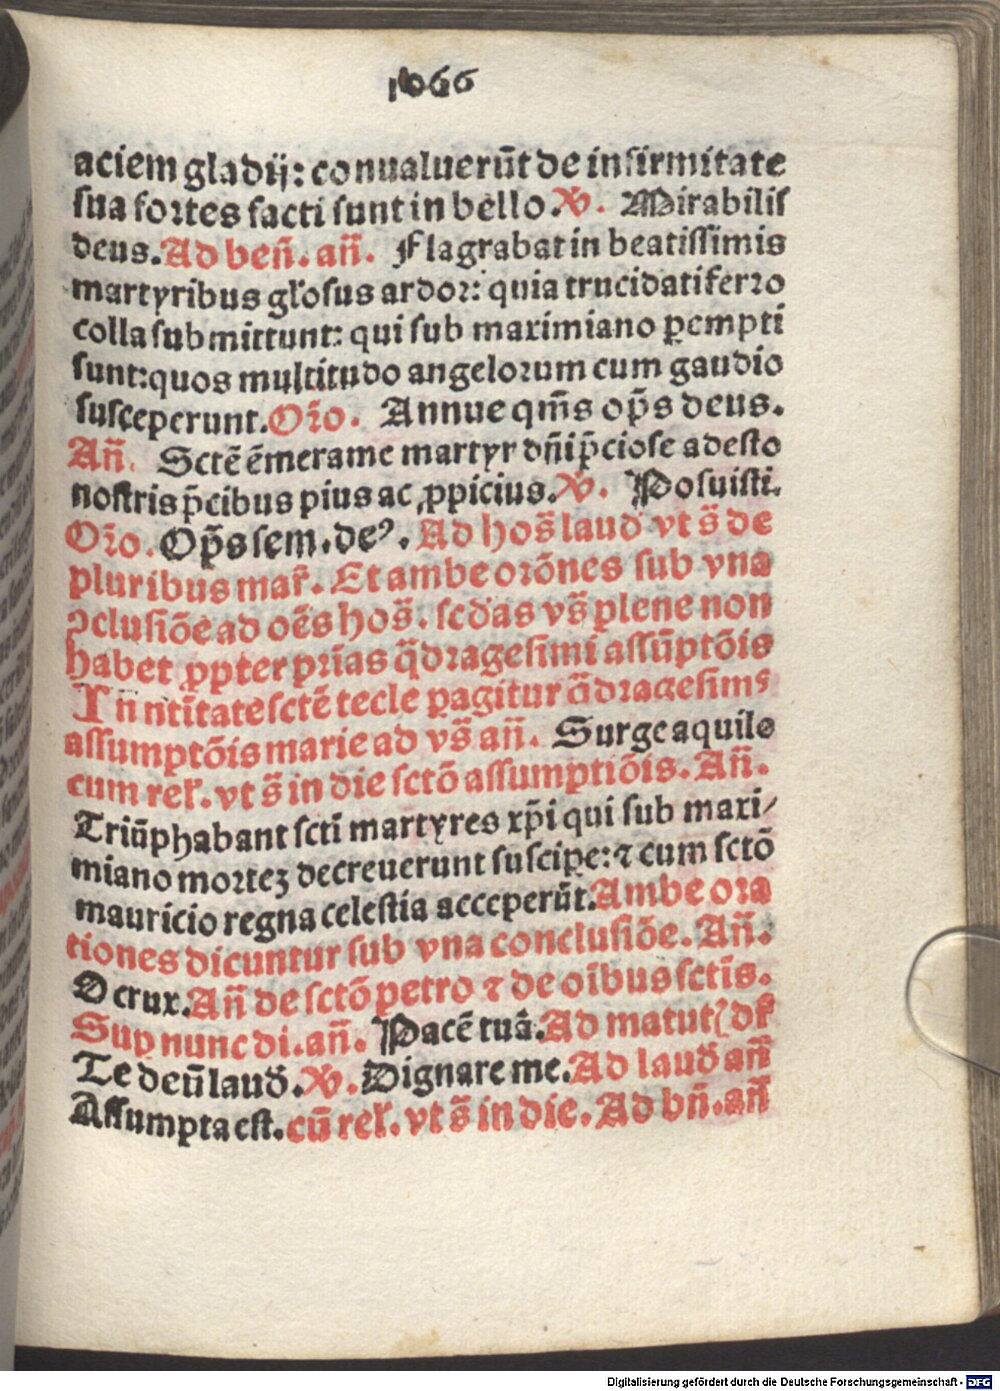 1066
aciem gladij: conualuerūt de infirmitate
sua fortes facti sunt in bello. ꝟ. Mirabilis
deus. Ad beñ. añ. Flagrabat in beatissimis
martyribus gl̓osus ardor: quia trucidati ferro
colla submittunt: qui sub maximiano ꝑempti
sunt: quos multitudo angelorum cum gaudio
susceperunt. Or̄o. Annue qm̄s op̄s deus.
Añ. Sctē ēmerame martyr dñi p̄ciose adesto
nostris p̄cibus pius ac ꝓpicius. ꝟ. Posuisti.
Or̄o. Op̄s sem. deꝰ. Ad hos̄ laud vt s̄ de
pluribus mar̄. Et ambe orōnes sub vna
ꝯclusiōe ad oēs hos̄. scd̄as vs̄ plene non
habet ꝓpter pr̄ias q̄dragesimi assūptōis
In ntītate sctē tecle ꝑagitur q̄dragesimꝰ
assumptōis marie ad vs̄ añ. Surge aquilo
cum rel̓. vt s̄ in die sctō assumptiōis. Añ.
Triūphabant sctī martyres xp̄i qui sub maxi/
miano mortez decreuerunt suscipe: ⁊ cum sctō
mauricio regna celestia acceperūt. Ambe ora
tiones dicuntur sub vna conclusiōe. Añ.
O crux. Añ de sctō petro ⁊ de oībus sctīs.
Sup nunc di. añ. Pacē tuā. Ad matutꝭ dr̄
Te deū laud̄. ꝟ. Dignare me. Ad laud̄ añ
Assumpta est. cū rel̓. vt s̄ in die. Ad bñ. añ
Digitalisierung gefördert durch die Deutsche Forschungsgemeinschaft - DFG